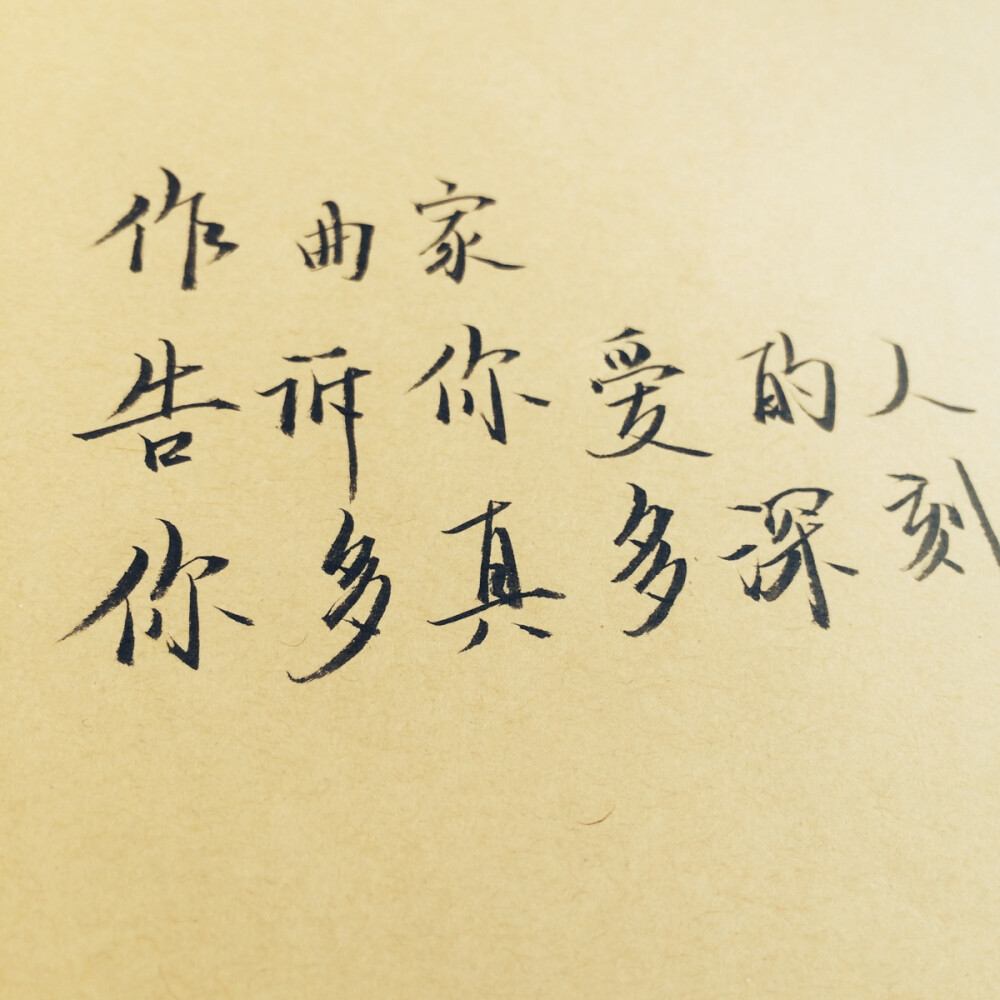 作曲家
告诉你爱的人
你多真多深刻